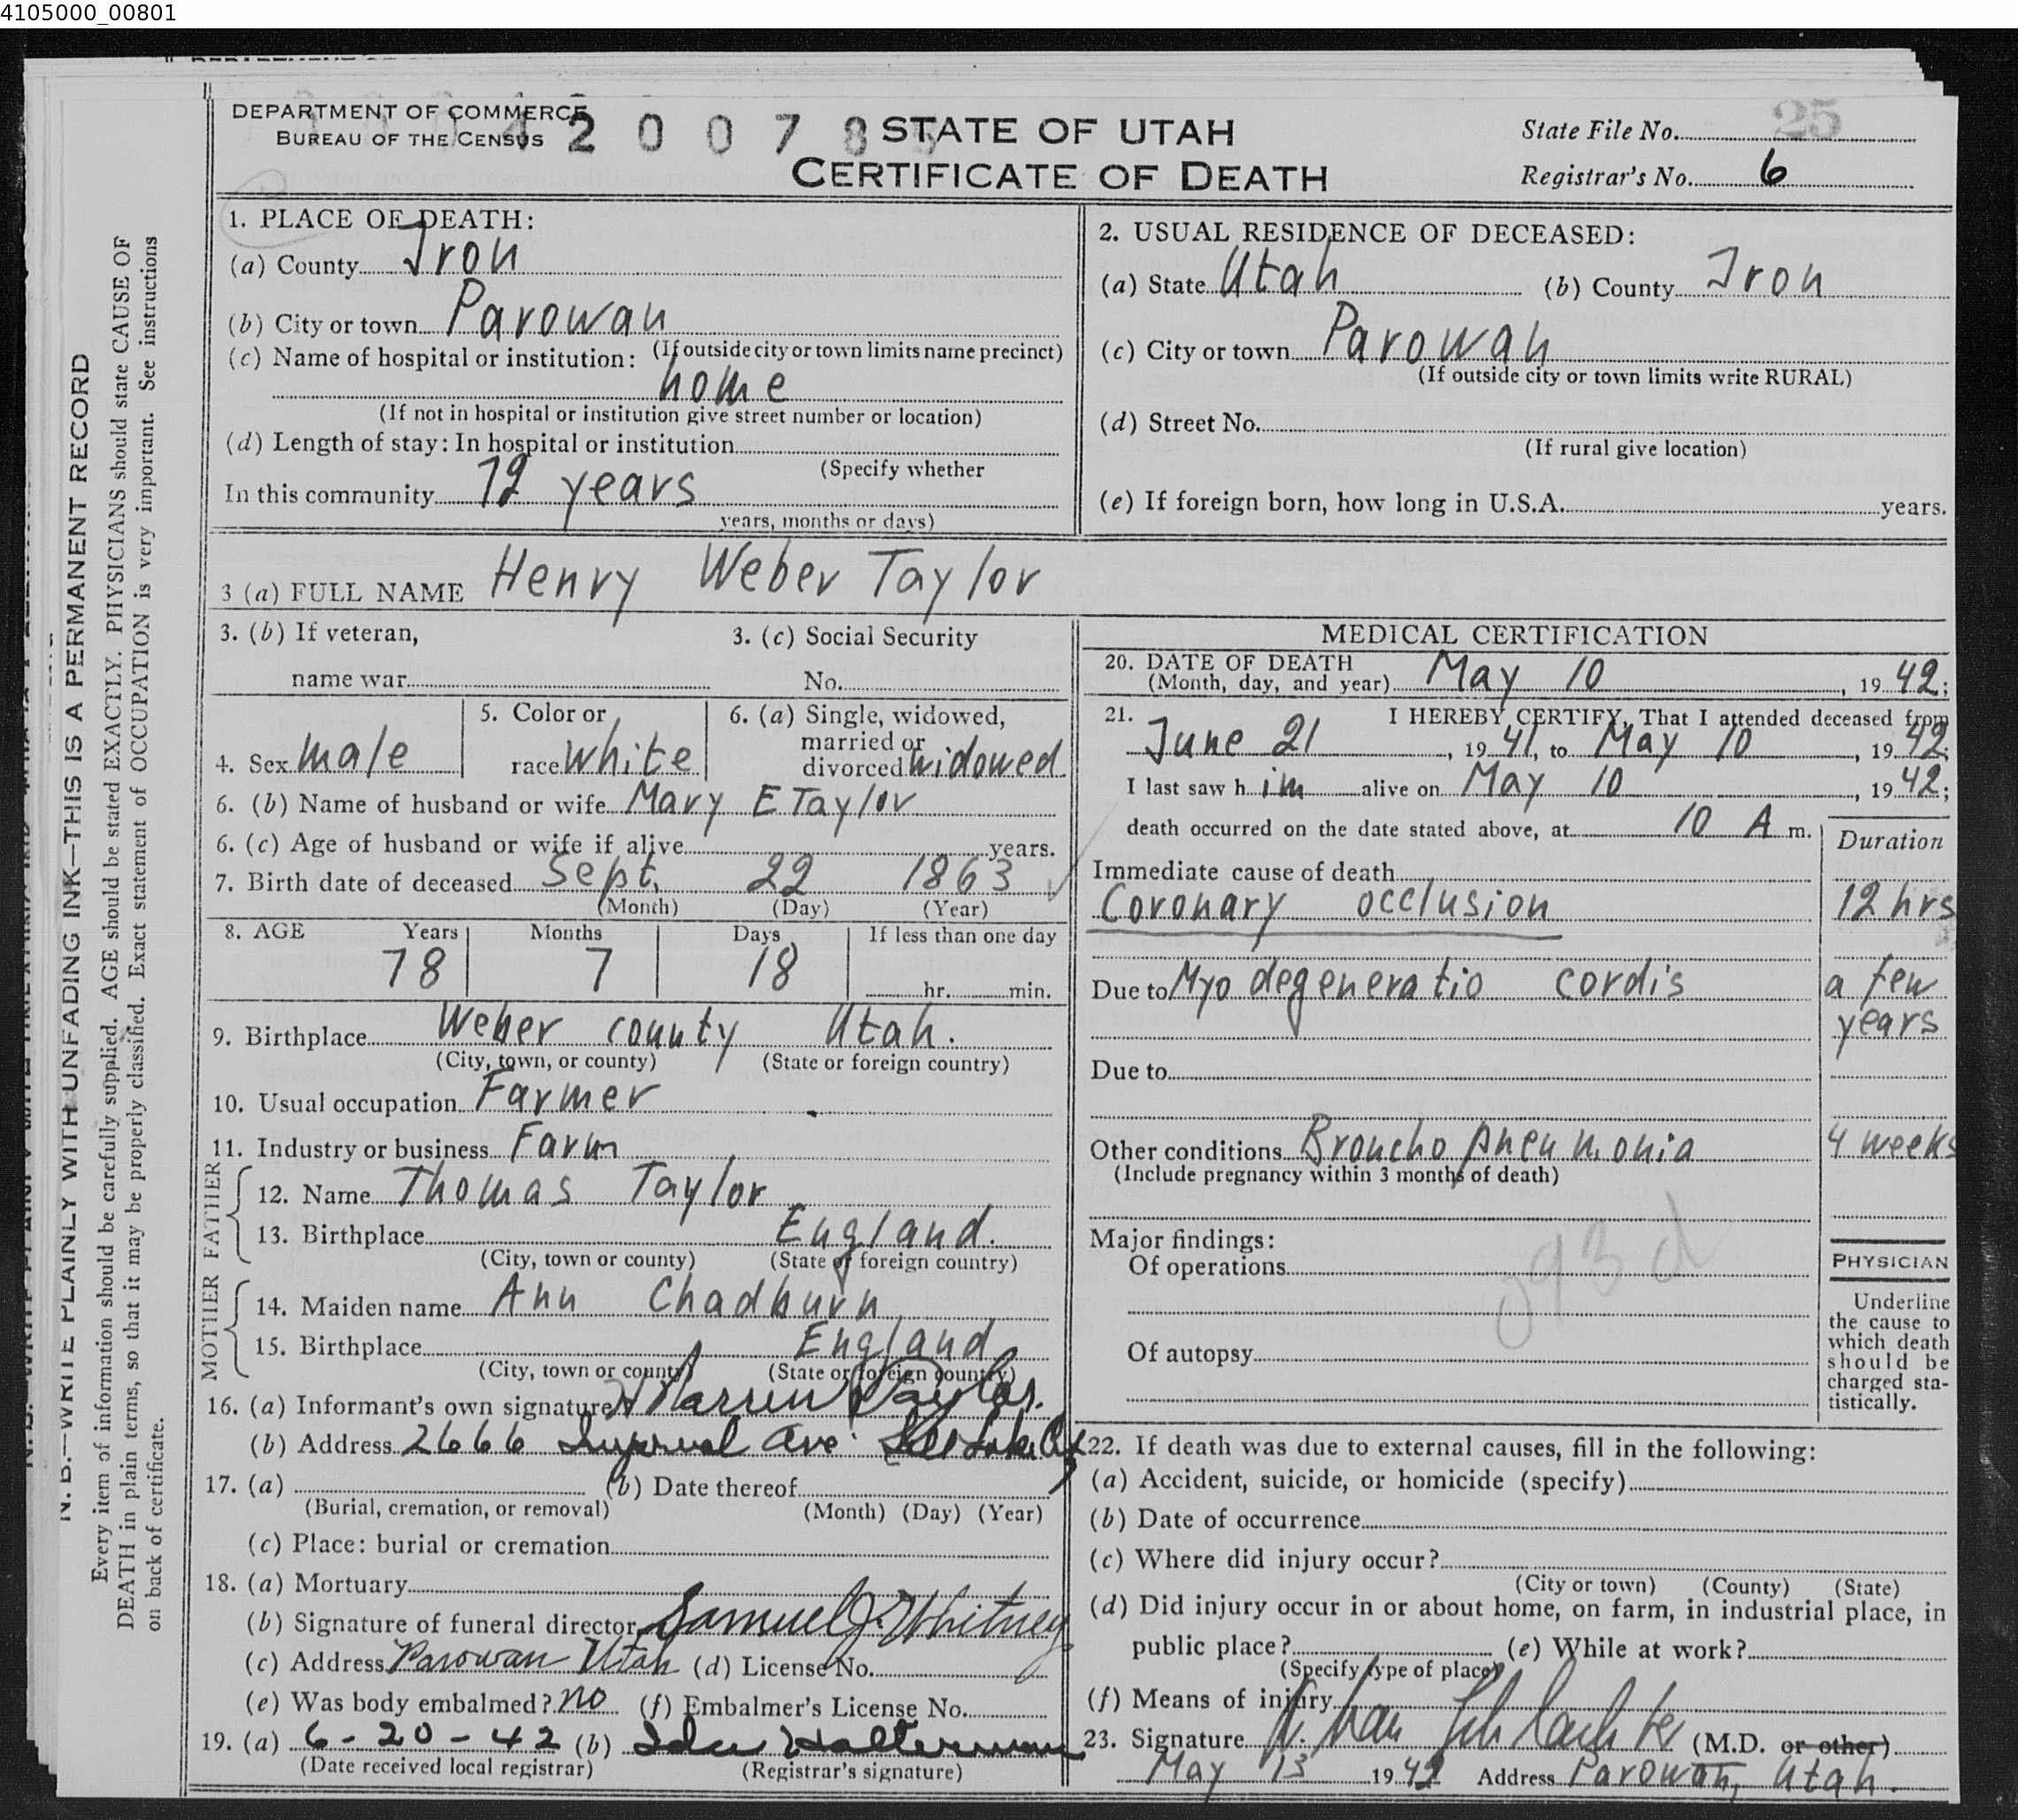 4105000_00801
DEPARTMENT OF COMMERCE
BUREAU OF THE CENSUS
2 0 0 7 8
STATE OF UTAH
CERTIFICATE OF DEATH
State File No. 25
Registrar's No. 6
N. B.—WRITE PLAINLY WITH UNFADING INK—THIS IS A PERMANENT RECORD
Every item of information should be carefully supplied. AGE should be stated EXACTLY. PHYSICIANS should state CAUSE OF
DEATH in plain terms, so that it may be properly classified. Exact statement of OCCUPATION is very important. See instructions
on back of certificate.
1. PLACE OF DEATH:
(a) County Iron
(b) City or town Parowan
(If outside city or town limits name precinct)
(c) Name of hospital or institution:
home
(If not in hospital or institution give street number or location)
(d) Length of stay: In hospital or institution
(Specify whether
In this community 72 years
years, months or days)
2. USUAL RESIDENCE OF DECEASED:
(a) State Utah (b) County Iron
(c) City or town Parowan
(If outside city or town limits write RURAL)
(d) Street No.
(If rural give location)
(e) If foreign born, how long in U.S.A. years.
3 (a) FULL NAME Henry Weber Taylor
3. (b) If veteran, 3. (c) Social Security
name war No.
4. Sex male 5. Color or race white 6. (a) Single, widowed, married or divorced widowed
6. (b) Name of husband or wife Mary E Taylor
6. (c) Age of husband or wife if alive years.
7. Birth date of deceased Sept. 22 1863
(Month) (Day) (Year)
8. AGE Years Months Days If less than one day
78 7 18 hr. min.
9. Birthplace Weber county Utah.
(City, town, or county) (State or foreign country)
10. Usual occupation Farmer
11. Industry or business Farm
FATHER
12. Name Thomas Taylor
13. Birthplace England.
(City, town or county) (State of foreign country)
MOTHER
14. Maiden name Ann Chadburn
15. Birthplace England
(City, town or county) (State or foreign country)
16. (a) Informant's own signature Warren Taylor.
(b) Address 2666 Imperial Ave. Salt Lake City
17. (a) (b) Date thereof
(Burial, cremation, or removal) (Month) (Day) (Year)
(c) Place: burial or cremation
18. (a) Mortuary
(b) Signature of funeral director Samuel J. Whitney
(c) Address Parowan Utah (d) License No.
(e) Was body embalmed? no (f) Embalmer's License No.
19. (a) 6-20-42 (b) Ida Halterman
(Date received local registrar) (Registrar's signature)
MEDICAL CERTIFICATION
20. DATE OF DEATH
(Month, day, and year) May 10, 1942;
21. I HEREBY CERTIFY, That I attended deceased from
June 21, 1941, to May 10, 1942;
I last saw h im alive on May 10, 1942;
death occurred on the date stated above, at 10 A m.
Duration
Immediate cause of death
Coronary occlusion 12 hrs
Due to Myo degeneratio cordis a few
years
Due to
Other conditions Broncho pneumonia 4 weeks
(Include pregnancy within 3 months of death)
Major findings:
Of operations
93d
Of autopsy
PHYSICIAN
Underline
the cause to
which death
should be
charged sta-
tistically.
22. If death was due to external causes, fill in the following:
(a) Accident, suicide, or homicide (specify)
(b) Date of occurrence
(c) Where did injury occur?
(City or town) (County) (State)
(d) Did injury occur in or about home, on farm, in industrial place, in
public place? (e) While at work?
(Specify type of place)
(f) Means of injury
23. Signature (M.D. or other)
May 13 1942 Address Parowan, Utah.